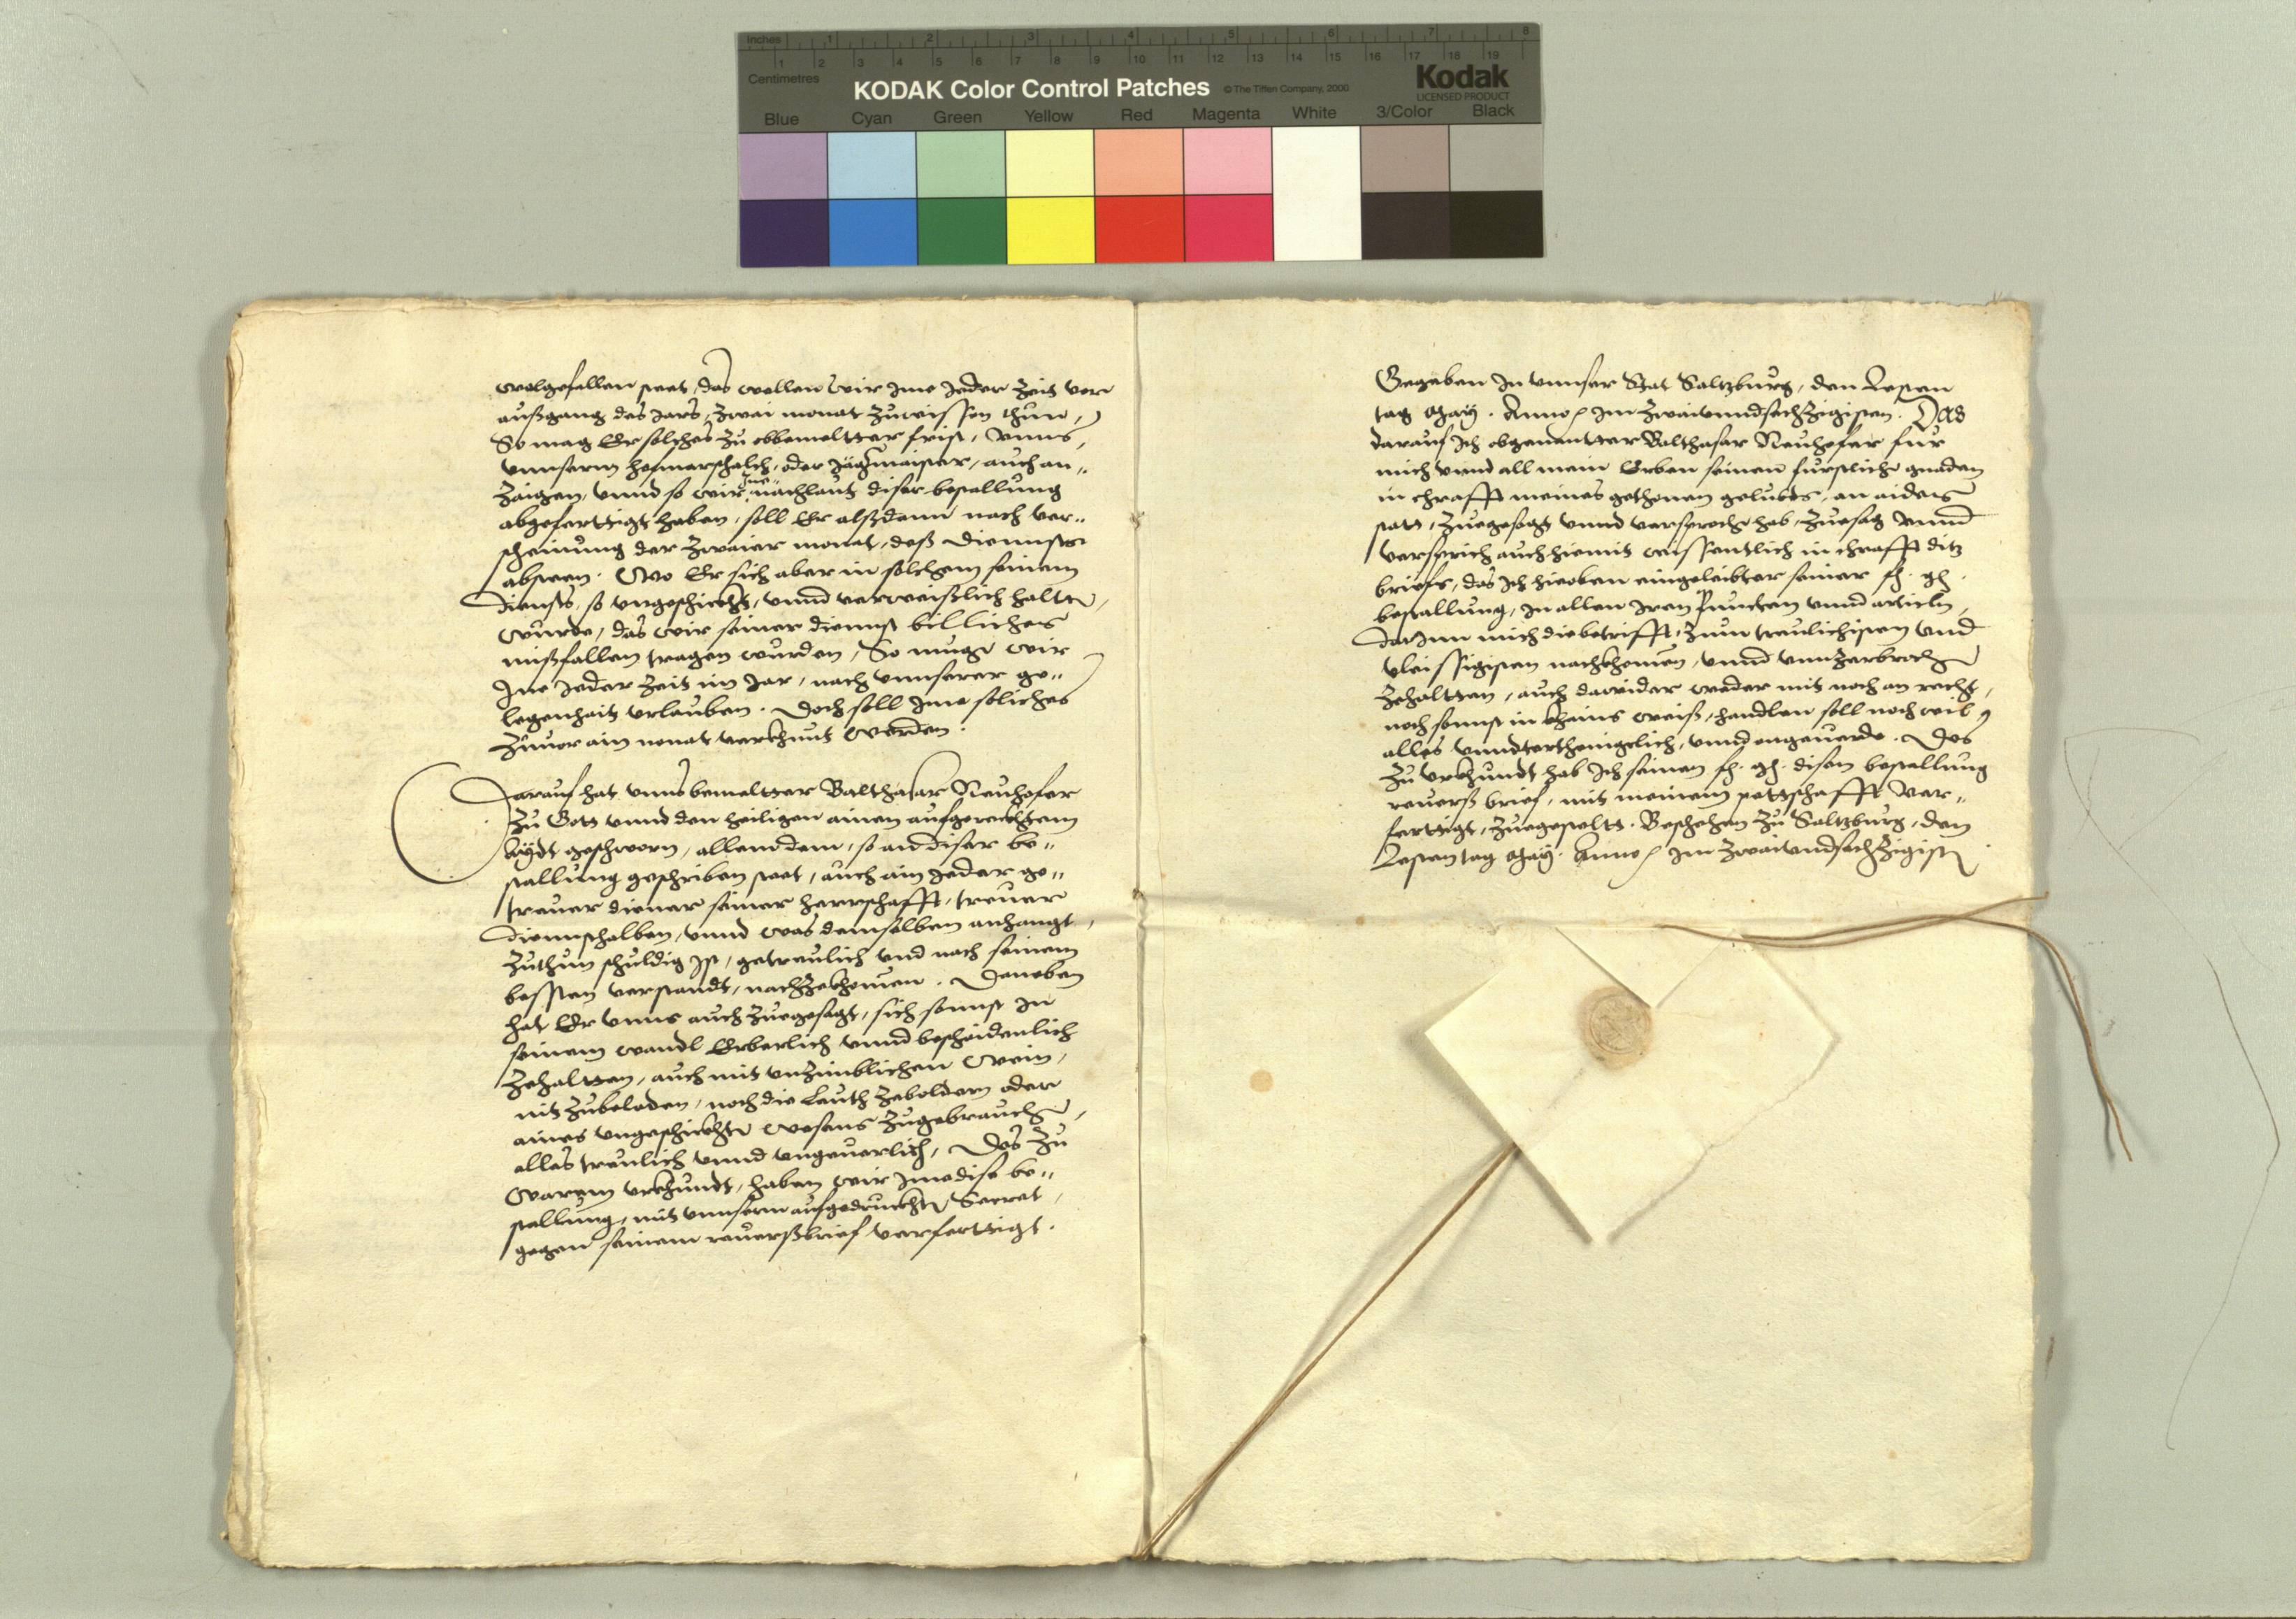 Inches 1 2 3 4 5 6 7 8
Centimetres 1 2 3 4 5 6 7 8 9 10 11 12 13 14 15 16 17 18 19
KODAK Color Control Patches © The Tiffen Company, 2000 Kodak
LICENSED PRODUCT
Blue Cyan Green Yellow Red Magenta White 3/Color Black
wolgefallen steet, das wellen wir ime jeder zeit vor
außgang des Jars, zwai monat zuwissen thun,
So mag Er solches zu obbemeltter frist, unns,
unnserm hofmarschalch, oder Jägermaister, auch an„
zaigen, unnd so wir ine nachlaut diser bestallung
abgeferttigt haben, soll Er alßdann nach ver„
scheinung der zwaier monat, deß diennsts
absteen. Wo Er sich aber in solchem seinem
dienst, so ungeschickht, unnd verweißlich haltten
wurde, das wir seiner dienst billiches
mißfallen tragen wurden, So mugen wir
Ine jeder zeit im Jar, nach unnserer ge„
legenhait urlauben. Doch soll Ime soliches
zuvor ain monat verkhunt werden.
Darauf hat unns bemeltter Balthasar Neuhofer
zu Gott unnd den heiligen ainen aufgerechtem
Aydt geschworn, allem dem, so an diser be„
stallung geschriben steet, auch ain jeder ge„
treuer diener seiner herrschafft, treuer
diennsthalben, unnd was demselben anhangt,
zuthun schuldig ist, getreulich und nach seinem
bessten verstandt, nachzekhomen. Daneben
hat Er unns auch zuegesagt, sich sonnst in
seinem wandl Erberlich unnd beschaidenlich
zehaltten, auch mit unzimblichen Wein,
nit zubeladen, noch die Leuth zeboldern oder
aines ungeschickhten wesens zugebrauchen,
alles treulich unnd ungeverlich, Des zu
warem urkhundt, haben wir Ime dise be„
stallung, mit unnserm aufgedruckhten Secret,
gegen seinem reverßbrief verferttigt.
Gegeben in unnser Stat Saltzburg, den Lesten
tag May. Anno im zwaiunndsechzigisten. Das
darauf Ich obgenantter Balthasar Neuhofer fur
mich unnd all mein Erben seinen furstlichen gnaden
in chrafft meines gethonen gelubds, an aidens
statt, zuegesagt unnd versprochen hab, zuesag unnd
versprich auch hiemit wissentlich in chrafft ditz
briefs, das Ich hieoben eingeleibter seiner fh. gh.
bestallung, in allen iren puncten unnd articln,
Darinn mich die betrifft, zum treulichisten und
vleissigisten nachkhomen, unnd unnzerbrochen
zehaltten, auch dawider weder mit noch an recht,
noch sonnst in khains weiß, handlen soll noch wil,
alles unndterthenigclich, unnd ongeverde. Des
zu urkhundt hab Ich seinen fh. gh. disen bestallung
reverß brief, mit meinem pettschafft ver„
ferttigt, zuegestelt. Beschehen zu Saltzburg, den
Lesten tag May. Anno im zwaiundsechzigisten